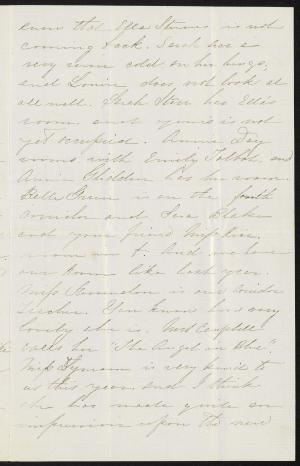 even that Ella Stearns is not
coming back. Sarah has a
very severe cold on her lungs,
and Louise does not look at
all well. Starr has Ella's
room and yours is not
yet occupied. Annie Day
rooms with Emily Talbot and
Annie Glidden has her room.
Belle Green is on the fourth
corridor and Blake
and your friend Miss
room in it. And we have
our room like last year.
Miss is our corridor
Teacher. You know how very
lovely she is. Campbell
calls her "The Angel in Blue".
Miss Lyman is very kind to
us this year, and I think
she has made quite an
impression upon the new